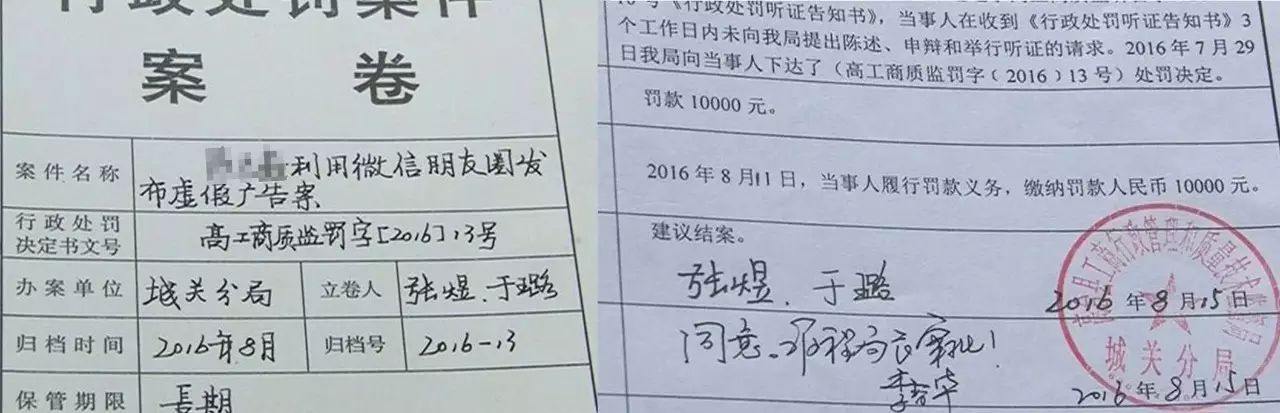 行政处罚案件
案 卷
案件名称
利用微信朋友圈发
布虚假广告案
行政处罚
决定书文号
高工商质监罚字[2016]13号
办案单位
城关分局
立卷人
张煜、于璐
归档时间
2016年8月
归档号
2016-13
保管期限
長期
10号《行政处罚听证告知书》，当事人在收到《行政处罚听证告知书》3
个工作日内未向我局提出陈述、申辩和举行听证的请求。2016年7月29
日我局向当事人下达了（高工商质监罚字〔2016〕13号）处罚决定。
罚款10000元。
2016年8月11日，当事人履行罚款义务，缴纳罚款人民币10000元。
建议结案。
张煜、于璐
2016年8月15日
同意。
局长审批！
2016年8月15日
县工商行政管理和质量技术监督局
城关分局